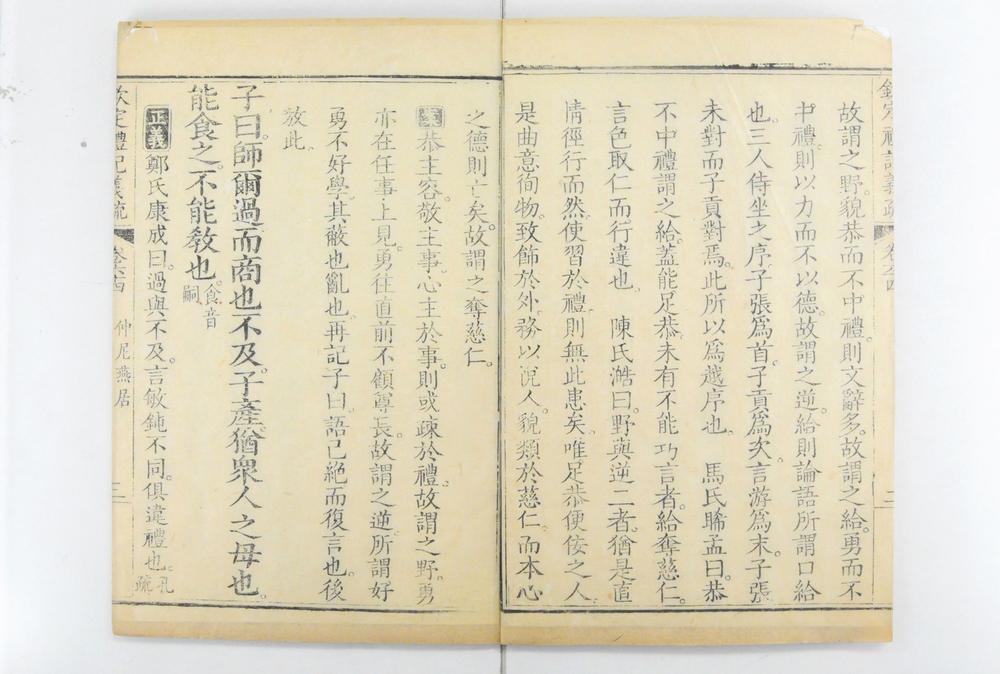 故謂之野。貌恭而不中禮。則文辭多。故謂之給。勇而不
中禮。則以力而不以德。故謂之逆。給則論語所謂口給
也。三人侍坐之序。子張爲首。子貢爲次。言游爲末。子張
未對而子貢對焉。此所以爲越序也。 馬氏睎孟曰。恭
不中禮謂之給。蓋能足恭。未有不能巧言者。給奪慈仁。
言色取仁而行違也。 陳氏澔曰。野與逆二者。猶是直
情徑行而然。使習於禮。則無此患矣。唯足恭便佞之人。
是曲意徇物。致飾於外。務以說人。貌類於慈仁。而本心
之德則亡矣。故謂之奪慈仁。
案 恭主容。敬主事。心主於事。則或疎於禮。故謂之野。勇
亦在任事上見。勇往直前。不顧尊長。故謂之逆。所謂好
勇不好學。其蔽也亂也。再記子曰。語已絕而復言也。後
放此。
子曰。師爾過。而商也不及。子產猶衆人之母也。
能食之。不能教也。食音嗣
正義 鄭氏康成曰。過與不及。言敏鈍不同。俱違禮也。孔疏
欽定禮記義疏 卷六十四 仲尼燕居 二